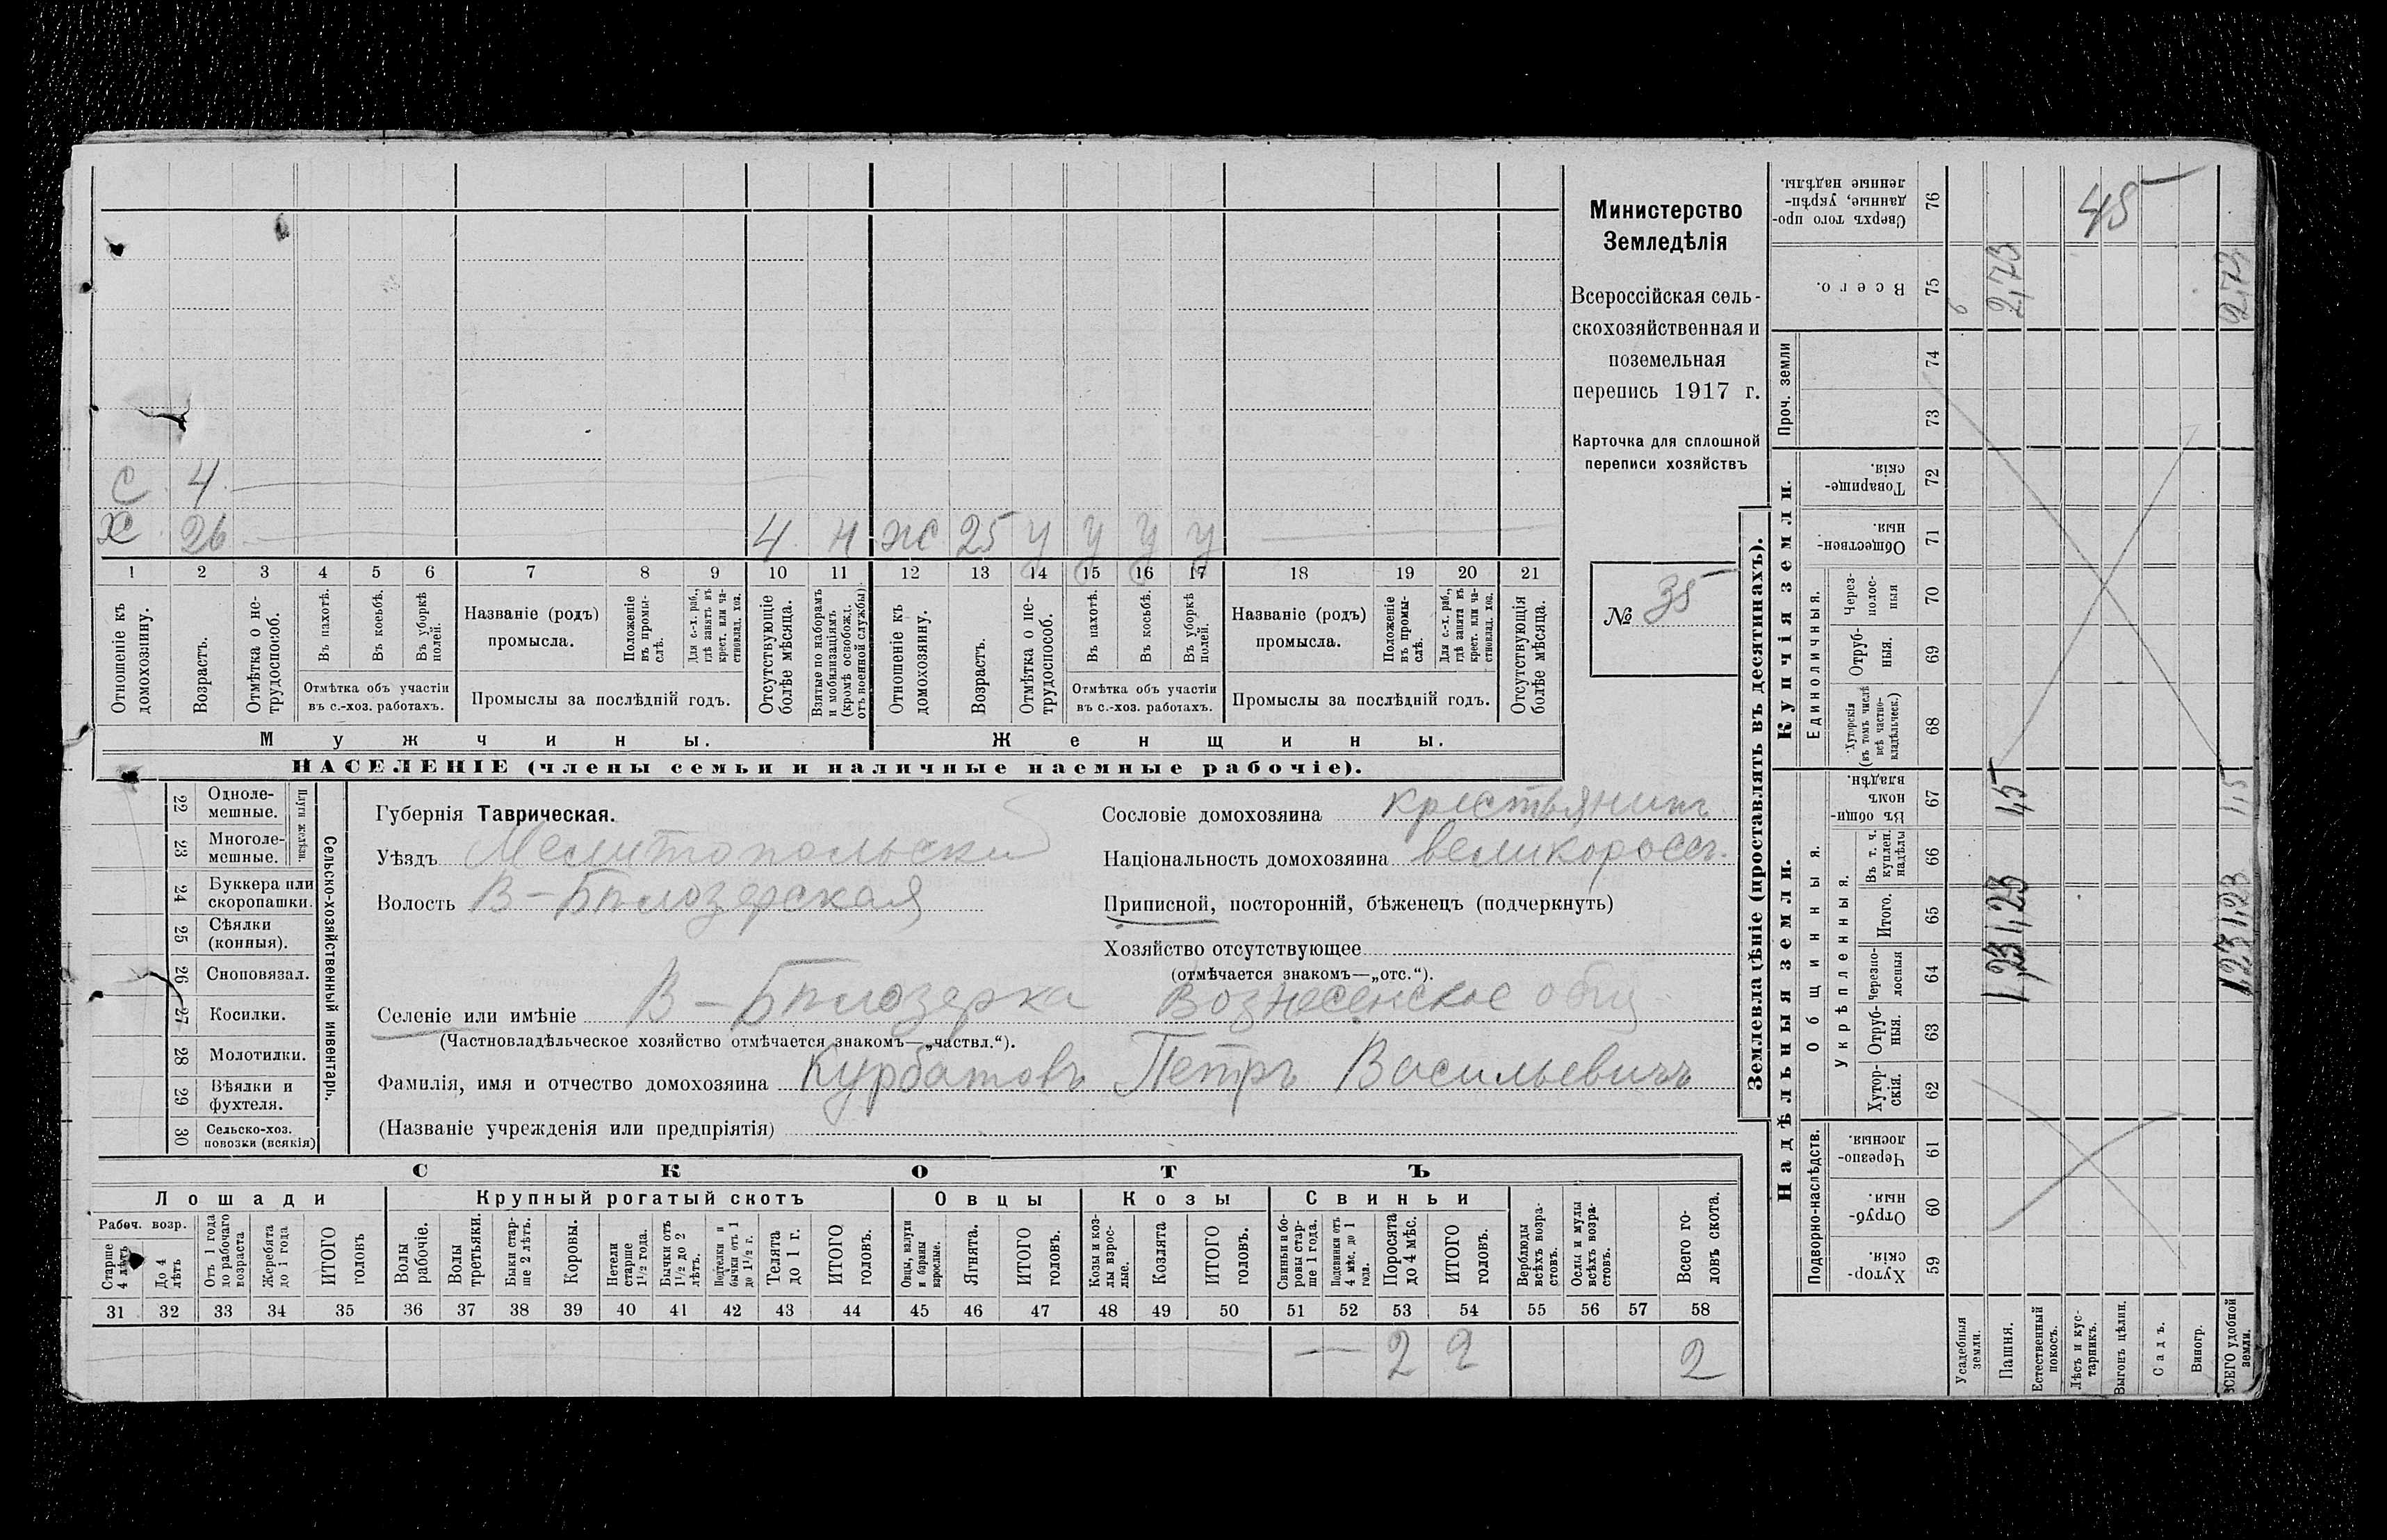 Министерство
Земледѣлія
Всероссійская сель-
скохозяйственная и
поземельная
перепись 1917 г.
Карточка для сплошной
переписи хозяйствъ
№ 35
С 4
Х 26 4 н ж 25 у у у у
1 2 3 4 5 6 7 8 9 10 11 12 13 14 15 16 17 18 19 20 21
Отношеніе къ домохозяину.
Возрастъ.
Отмѣтка о не-
трудоспособ.
Въ пахотѣ.
Въ косьбѣ.
Въ уборкѣ
полей.
Отмѣтка объ участіи
въ с.-хоз. работахъ.
Названіе (родъ)
промысла.
Положеніе
въ промы-
слѣ.
Для с.-х. раб.,
гдѣ занятъ въ
крест. или ча-
стновлад. хоз.
Промыслы за послѣдній годъ.
Отсутствующіе
болѣе мѣсяца.
Взятые по наборамъ
и мобилизаціямъ
(кромѣ освобожд.
отъ военной службы)
Отношеніе къ
домохозяину.
Возрастъ.
Отмѣтка о не-
трудоспособ.
Въ пахотѣ.
Въ косьбѣ.
Въ уборкѣ
полей.
Отмѣтка объ участіи
въ с.-хоз. работахъ.
Названіе (родъ)
промысла.
Положеніе
въ промы-
слѣ.
Для с.-х. раб.,
гдѣ занята въ
крест. или ча-
стновлад. хоз.
Промыслы за послѣдній годъ.
Отсутствующія
болѣе мѣсяца.
Мужчины. Женщины.
НАСЕЛЕНІЕ (члены семьи и наличные наемные рабочіе).
Сельско-хозяйственный инвентарь.
Плуги желѣзн.
22 Одноле-
мешные.
23 Многоле-
мешные.
24 Буккера или
скоропашки.
25 Сѣялки
(конныя).
26 Сноповязал.
27 Косилки.
28 Молотилки.
29 Вѣялки и
фухтеля.
30 Сельско-хоз.
повозки (всякія)
Губернія Таврическая.
Уѣздъ Мелитопольскій
Волость В-Бѣлозерская
Сословіе домохозяина крестьянинъ
Національность домохозяина великороссъ.
Приписной, посторонній, бѣженецъ (подчеркнуть)
Хозяйство отсутствующее
(отмѣчается знакомъ—„отс.“).
Селеніе или имѣніе В-Бѣлозерка Вознесенское общ
(Частновладѣльческое хозяйство отмѣчается знакомъ—„частвл.“).
Фамилія, имя и отчество домохозяина Курбатовъ Петръ Васильевичъ
(Названіе учрежденія или предпріятія)
СКОТЪ
Лошади Крупный рогатый скотъ Овцы Козы Свиньи
Рабоч. возр.
Старше
4 лѣтъ
До 4
лѣтъ
Отъ 1 года
до рабочаго
возраста
Жеребята
до 1 года
ИТОГО
головъ
Волы
рабочіе.
Волы
третьяки.
Быки стар-
ше 2 лѣтъ.
Коровы.
Нетели
старше
1½ года.
Бычки отъ
1½ до 2
лѣтъ.
Подтелки и
бычки отъ 1
до 1½ г.
Телята
до 1 г.
ИТОГО
головъ.
Овцы, валухи
и бараны
взрослые.
Ягнята.
ИТОГО
головъ.
Козы и коз-
лы взрос-
лые.
Козлята
ИТОГО
головъ.
Свиньи и бо-
ровы стар-
ше 1 года.
Подсвинки отъ
4 мѣс. до 1
года.
Поросята
до 4 мѣс.
ИТОГО
головъ.
Верблюды
всѣхъ возра-
стовъ.
Ослы и мулы
всѣхъ возра-
стовъ.
Всего го-
ловъ скота.
31 32 33 34 35 36 37 38 39 40 41 42 43 44 45 46 47 48 49 50 51 52 53 54 55 56 57 58
— 2 2 2
Землевладѣніе (проставлять въ десятинахъ).
Надѣльныя земли. Купчія земли. Проч. земли
Подворно-наслѣдств.
Общинныя.
Укрѣпленныя.
Единоличныя.
Хутор-
скія. 59
Отруб-
ныя. 60
Черезпо-
лосныя. 61
Хутор-
скія. 62
Отруб-
ныя. 63
Черезпо-
лосныя 64
Итого. 65
Въ т. ч.
куплен.
надѣлы 66
Въ общин-
номъ
владѣн. 67
Хуторскія
(въ томъ числѣ
всѣ частно-
владѣльческ.) 68
Отруб-
ныя. 69
Через-
полос-
ныя 70
Обществен-
ныя. 71
Товарище-
скія. 72
73
74
Всего. 75
Сверхъ того про-
данные, укрѣп-
ленные надѣлы. 76
Усадебныя
земли. 6
Пашня. 1,23 1,23 1,5 2,73
Естественный
покосъ.
Лѣсъ и кус-
тарникъ. 45
Выгонъ цѣлин.
Садъ.
Виногр.
ВСЕГО удобной
земли. 1,23 1,23 1,5 2,73